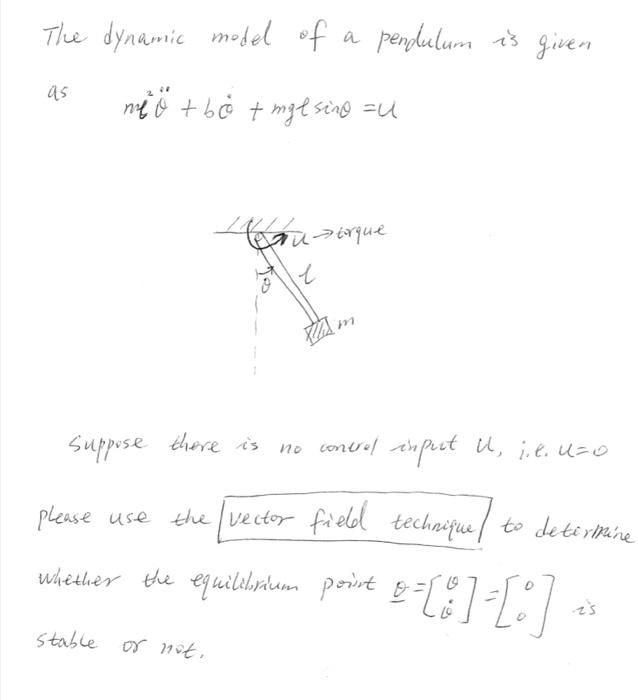 The dynamic model of a pendulum is given
as ml²θ̈ + bθ̇ + mglsinθ = u
u → torque
θ
l
m
Suppose there is no control input u, i.e. u=0
please use the vector field technique to determine
whether the equilibrium point θ = [θ θ̇] = [0 0] is
stable or not.